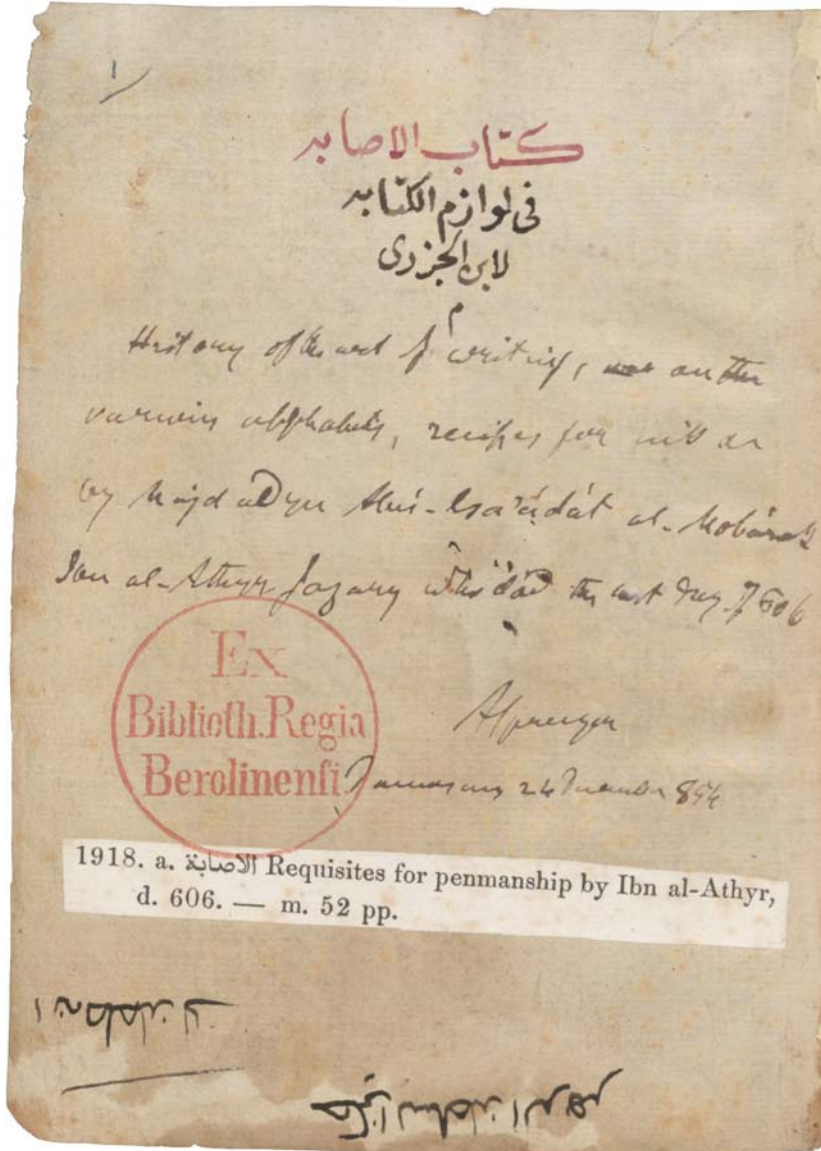 1
كتاب الاصابه
فى لوازم الكتابه
لابن الجزرى
م
History of the art of writing, on the
various alphabets, recipes for ink &c
by Majd aldyn Abú-lsa'ádát al-Mobárak
Ibn al-Athyr Jazary who died the last day of 606
ASprenger
Damascus 24 December 854
Ex
Biblioth. Regia
Berolinensi
1918. a. الاصابة Requisites for penmanship by Ibn al-Athyr,
d. 606. — m. 52 pp.